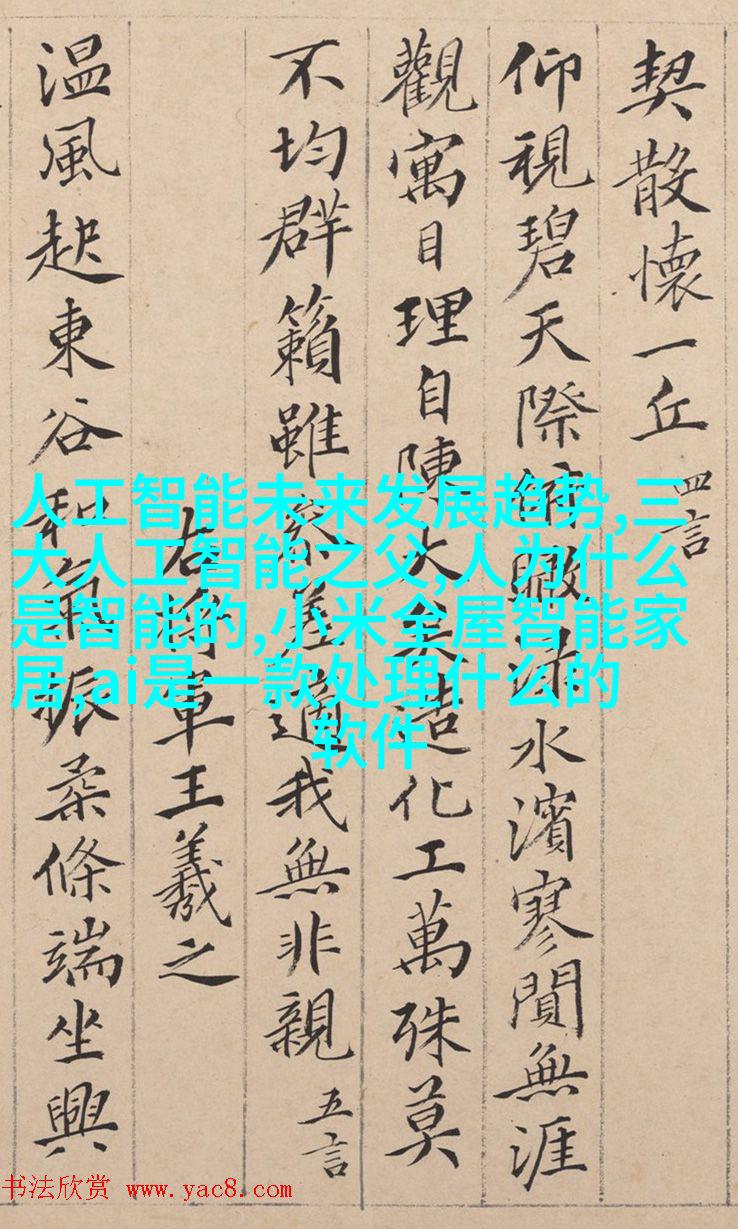 契散懷一丘 四言
仰視碧天際俯瞰淥水濱寥閴無涯
觀寓目理自陳大矣造化工萬殊莫
不均群籟雖參差適我無非親 五言
右將軍王羲之
温風起東谷和氣振柔條端坐興
人工智能未来发展趋势,三
大人工智能之父,人为什么
是智能的,小米全屋智能家
居,ai是一款处理什么的
软件
书法欣赏 www.yac8.com